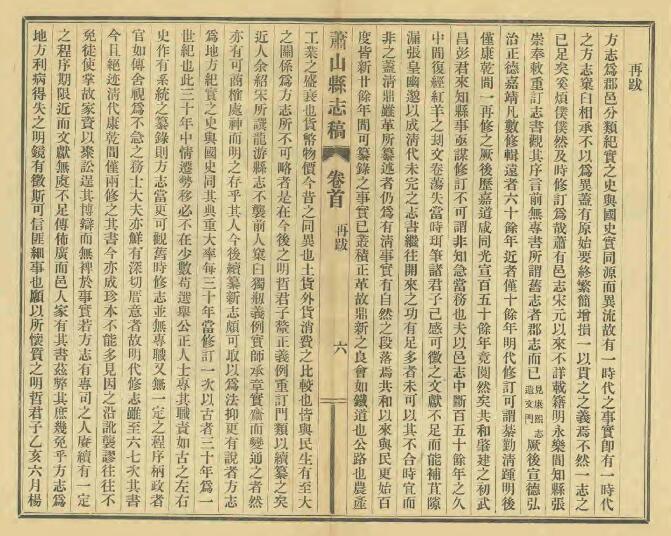 再跋
方志爲郡邑分類紀實之史與國史實同源而異流故有一時代之事實即有一時代
之方志窠臼相承不以爲異蓋有原始要終修繁簡增損一以貫之之義焉不然一志之
已足矣奚煩僕僕然及時修訂爲哉蕭有邑志宋元以來不詳載籍明永樂間知縣張
崇奉敕重訂志書觀其序言前無專書所謂舊志者郡志而已見康熙志遺文門厥後宣德弘
治正德嘉靖凡數修輯遠者六十餘年近者僅十餘年明代修訂可謂綦勤淸踵明後
僅康乾間一再修之厥後歷嘉道咸同光宣百五十餘年竟闃然矣共和肇建之初武
昌彭君來知縣事亟謀修訂不可謂非知急當務也夫以邑志中斷百五十餘年之久
中間復經紅羊之刦文卷蕩失當時珥筆諸君子已感可徵之文獻不足而能補苴隙
漏張皇幽邈以成淸代未完之志書繼往開來之功有足多者未可以其不合時宜而
非之蓋淸鼎雖革所纂述者仍爲有淸事實有自然之段落焉共和以來與民更始百
度皆新廿餘年間可纂錄之事實已叢積正革故鼎新之良會如鐵道也公路也農產
蕭山縣志稿
卷首
再跋
六
工業之盛衰也貨幣物價今昔之同異也土貨外貨消費之比較也皆與民生有至大
之關係爲方志所不可略者是在今後之明哲君子釐正義例重訂門類以續纂之矣
近人余紹宋所譔龍游縣志不襲前人窠臼獨瓶義例實師承章實齋而變通之者然
亦有可商榷處神而明之存乎其人今後續纂新志頗可取以爲法抑更有說者方志
爲地方紀實之史與國史同其典重大率每三十年當修訂一次以古者三十年爲一
世紀也此三十年中情遷勢移必不在少數苟選舉公正人士專其職責如古之左右
史作有系統之纂錄則方志當更可觀舊時修志並無專職又無一定之程序柄政者
官如傳舍視爲不急之務士大夫亦鮮有深切厝意者故明代修志雖至六七次其書
今且絕迹淸代康乾間僅兩修之其書今亦成珍本不能多見因之沿訛襲謬往往不
免徒使掌故家資以聚訟逞其博辯而無裨於事實若方志有專司之人庶續有一定
之程序期限近而文獻無虞不足傳佈廣而邑人家有其書茲弊其庶幾免乎方志爲
地方利病得失之明鏡有徵斯可信匪細事也願以所懷質之明哲君子乙亥六月楊